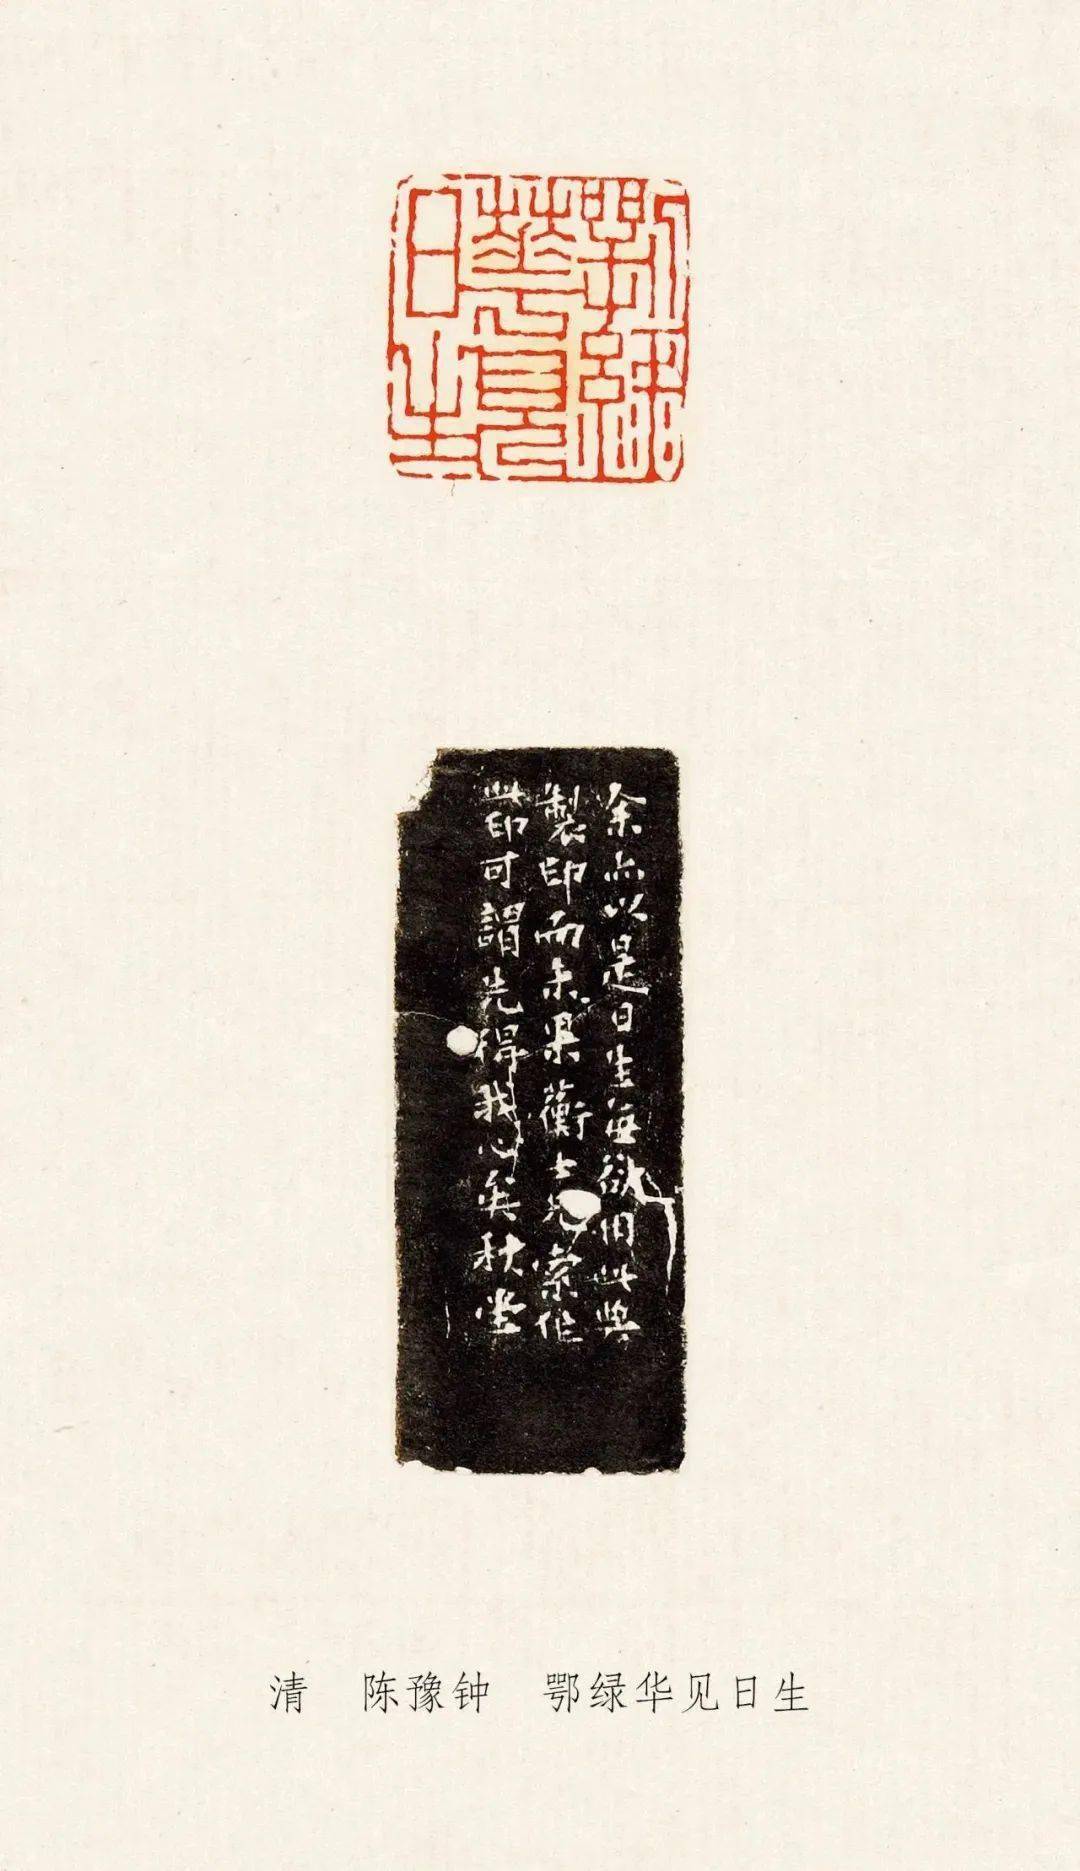 鄂綠
華見
日生
余亦以是日生每欲用此典
製印而未果蘅士兄索作
此印可謂先得我心矣秋堂
清 陈豫钟 鄂绿华见日生